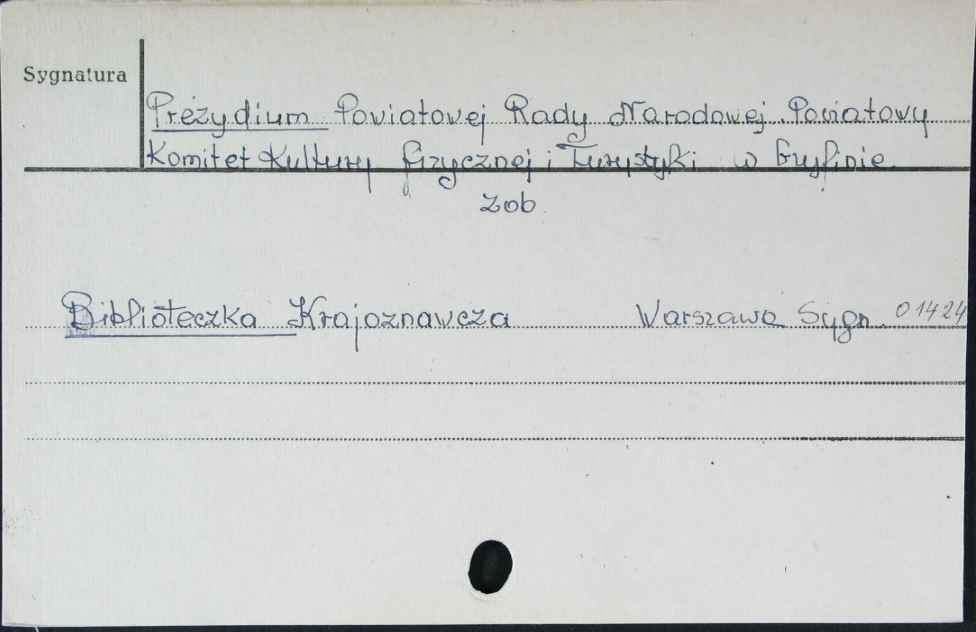 Sygnatura
Prezydium Powiatowej Rady Narodowej. Powiatowy
Komitet Kultury fizycznej i Turystyki w Gryfinie.
zob.
Biblioteczka Krajoznawcza Warszawa Sygn. 01424